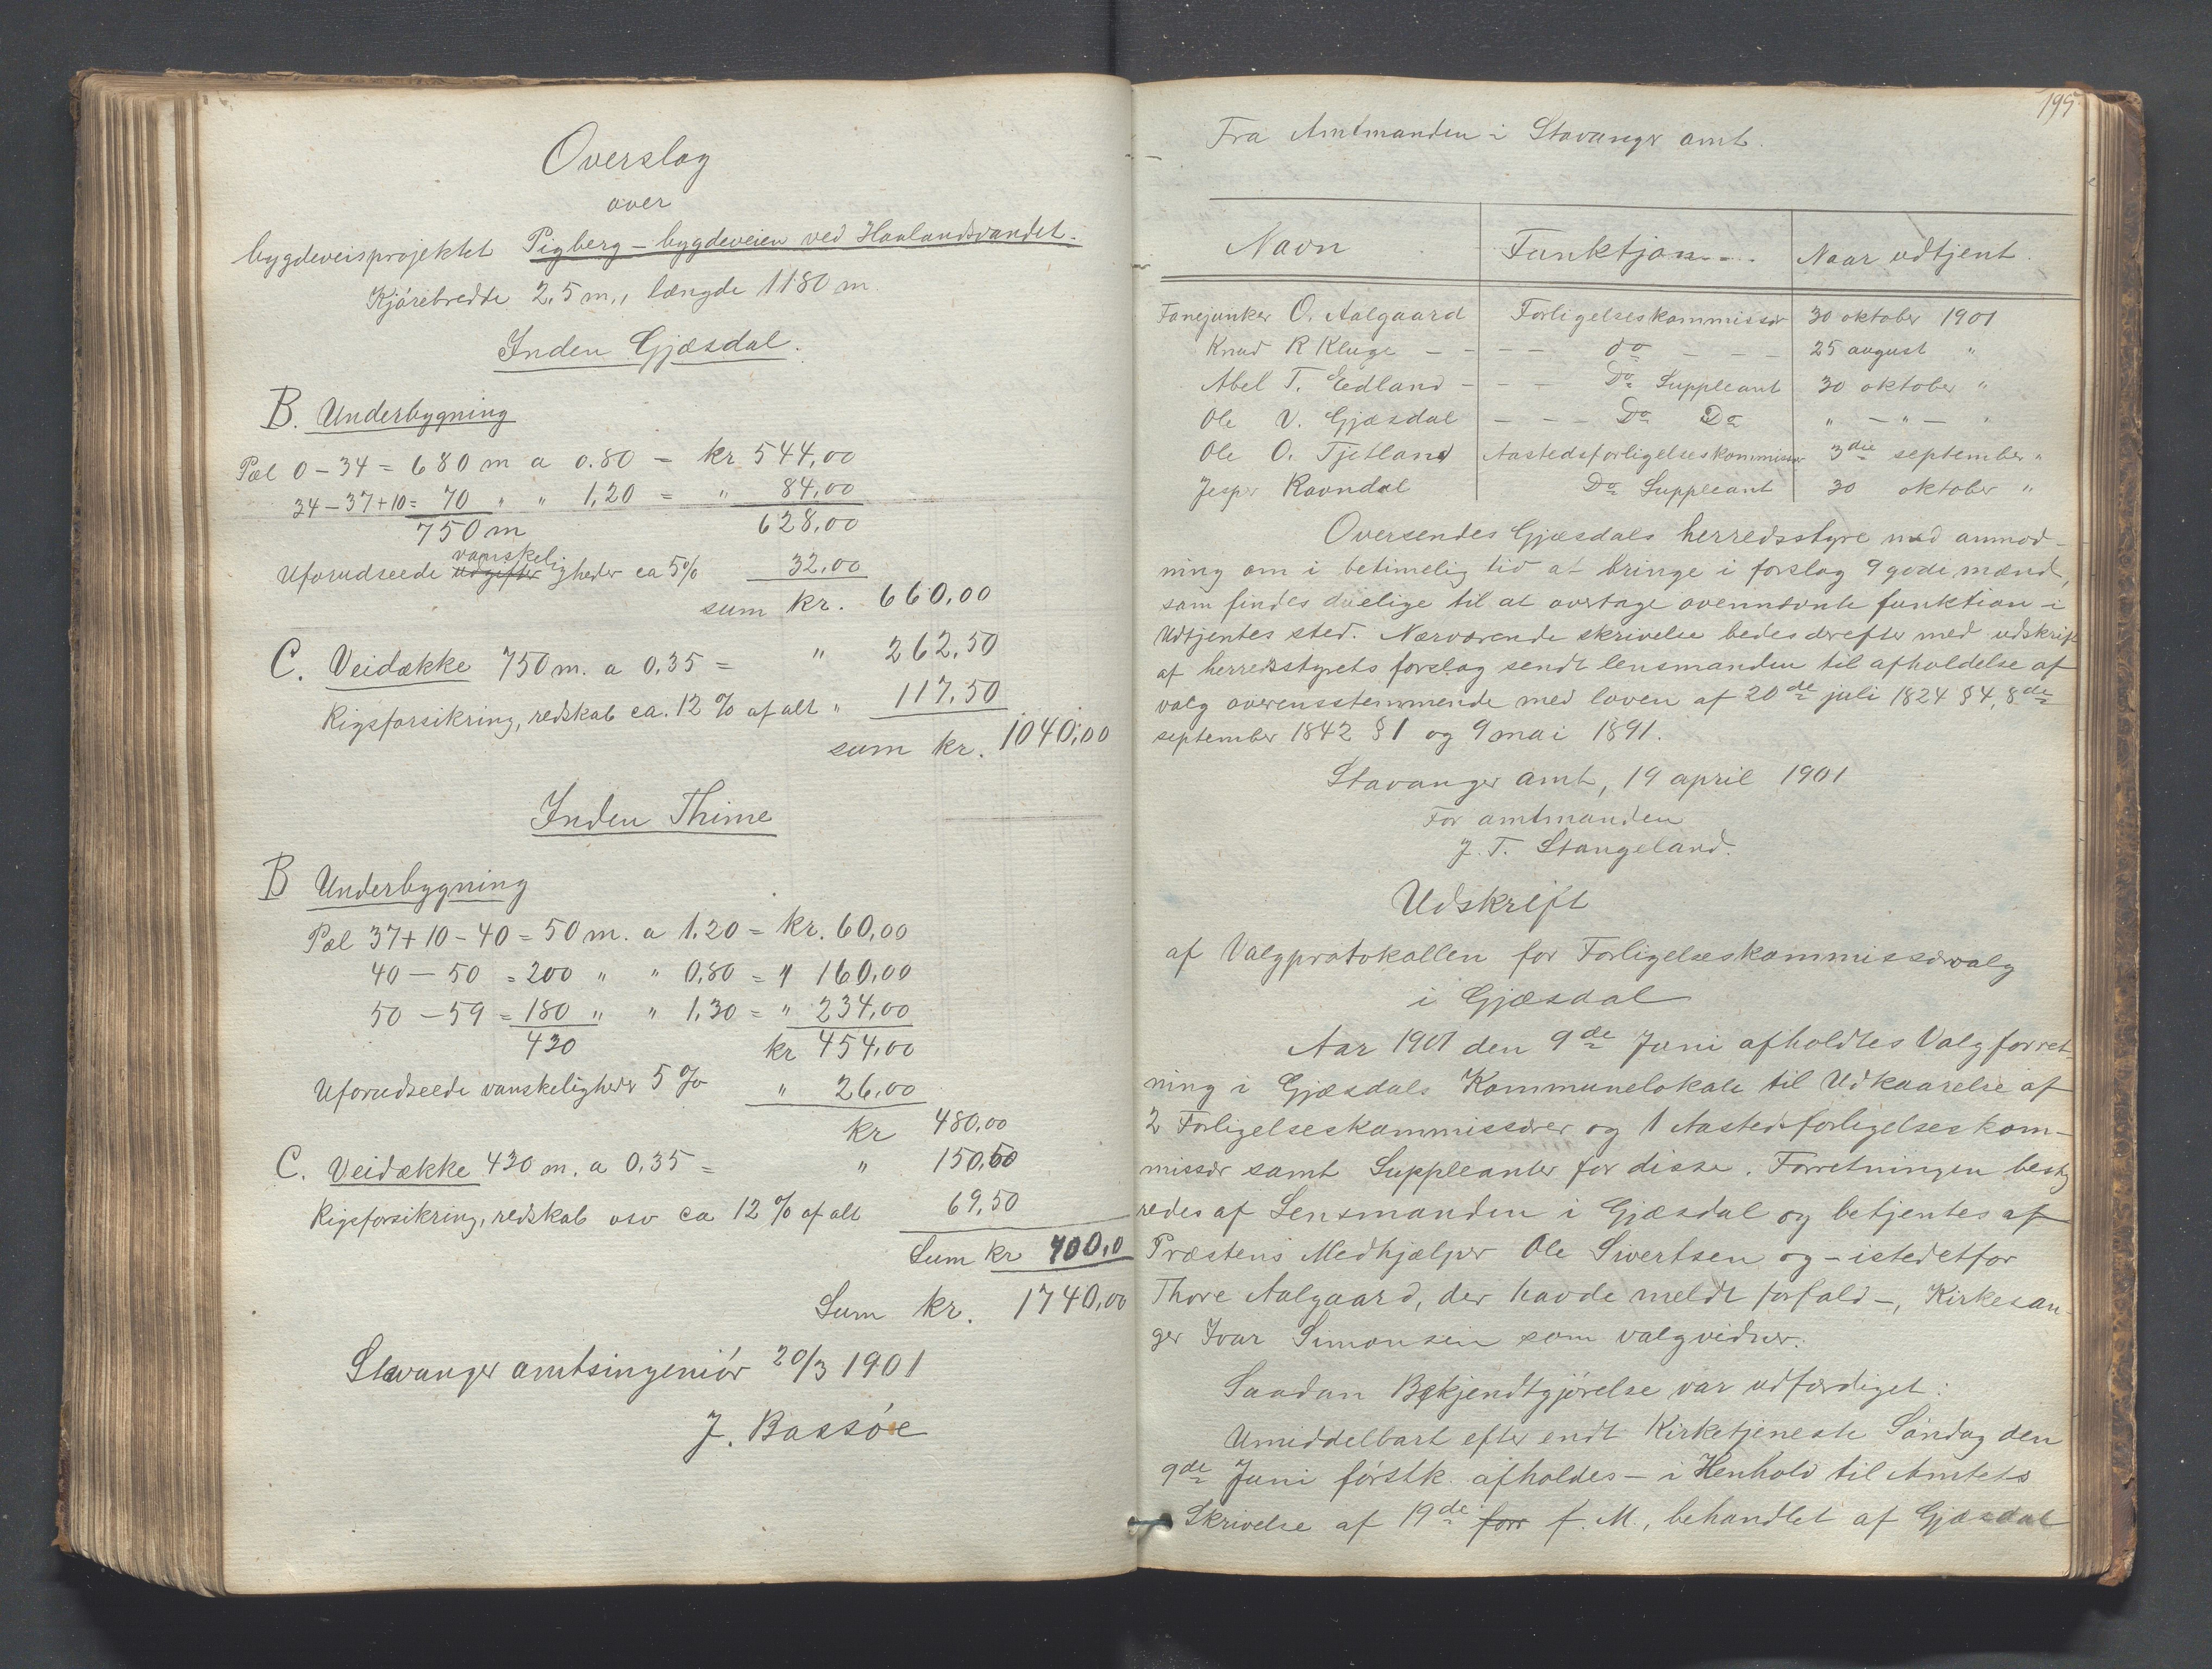 Overslag
over
bygdeveisprojektet Pigberg - bygdeveien ved Haalandsvandet.
Kjørebredde 2,5 m., længde 1180 m.
Inden Gjæsdal.
B. Underbygning
Pæl 0-34 = 680 m a 0.80 = kr 544,00
34-37+10 = 70 " " 1,20 = " 84,00
750 m 628,00
Uforudseede udgifter vanskeligheder ca 5% 32,00
sum kr. 660,00
C. Veidække 750 m. a 0,35 = " 262,50
Rigsforsikring, redskab ca. 12 % af alt " 117,50
sum kr. 1040,00
Inden Thime
B Underbygning
Pæl 37+10-40 = 50 m. a 1.20 = kr. 60,00
40-50 = 200 " " 0,80 = " 160,00
50-59 = 180 " " 1,30 = " 234,00
430 kr 454,00
Uforudseede vanskeligheder 5 % " 26,00
kr 480,00
C. Veidække 430 m. a 0,35 = " 150,50
Rigsforsikring, redskab osv ca 12 % af alt 69,50
Sum kr 700,0
Sum kr. 1740,00
Stavanger amtsingeniør 20/3 1901
J. Bassøe
195
Fra Amtmanden i Stavanger amt.
Navn Funktjon Naar udtjent.
Fanejunker O. Aalgaard Forligelseskommissær 30 oktober 1901
Knud R Kluge - - - - do - - - 25 august "
Abel T. Eedland - - - Do Suppleant 30 oktober "
Ole V. Gjæsdal - - - Do Do " - " - "
Ole O. Tjetland Aastedsforligelseskommissær 3die september "
Jesper Ravndal Do Suppleant 30 oktober "
Oversendes Gjæsdals herredsstyre med anmod-
ning om i betimelig tid at bringe i forslag 9 gode mænd,
som findes duelige til at overtage ovennævnte funktion i
Udtjentes sted. Nærværende skrivelse bedes derefter med udskrift
af herredsstyrets forslag sendt lensmanden til afholdelse af
valg overensstemmende med loven af 20de juli 1824 § 4, 8de
september 1842 § 1 og 9 mai 1891.
Stavanger amt, 19 april 1901
For amtmanden
J. T. Stangeland.
Udskrift
af Valgprotokollen for Forligelseskommissærvalg
i Gjæsdal
Aar 1901 den 9de Juni afholdtes Valgforret-
ning i Gjæsdals Kommunelokale til Udkaarelse af
2 Forligelseskommissærer og 1 Aastedsforligelseskom-
missær samt Suppleanter for disse. Forretningen besty
redes af Lensmanden i Gjæsdal og betjentes af
Præstens Medhjælper Ole Sivertsen og - istedetfor
Thore Aalgaard, der havde meldt forfald -, Kirkesan-
ger Ivar Simonsen som valgvidner.
Saadan Bekjendtgjørelse var udfærdiget:
Umiddelbart efter endt Kirketjeneste Søndag den
9de Juni førstk. afholdes - i Henhold til Amtets
Skrivelse af 19de forr f. M., behandlet af Gjæsdal